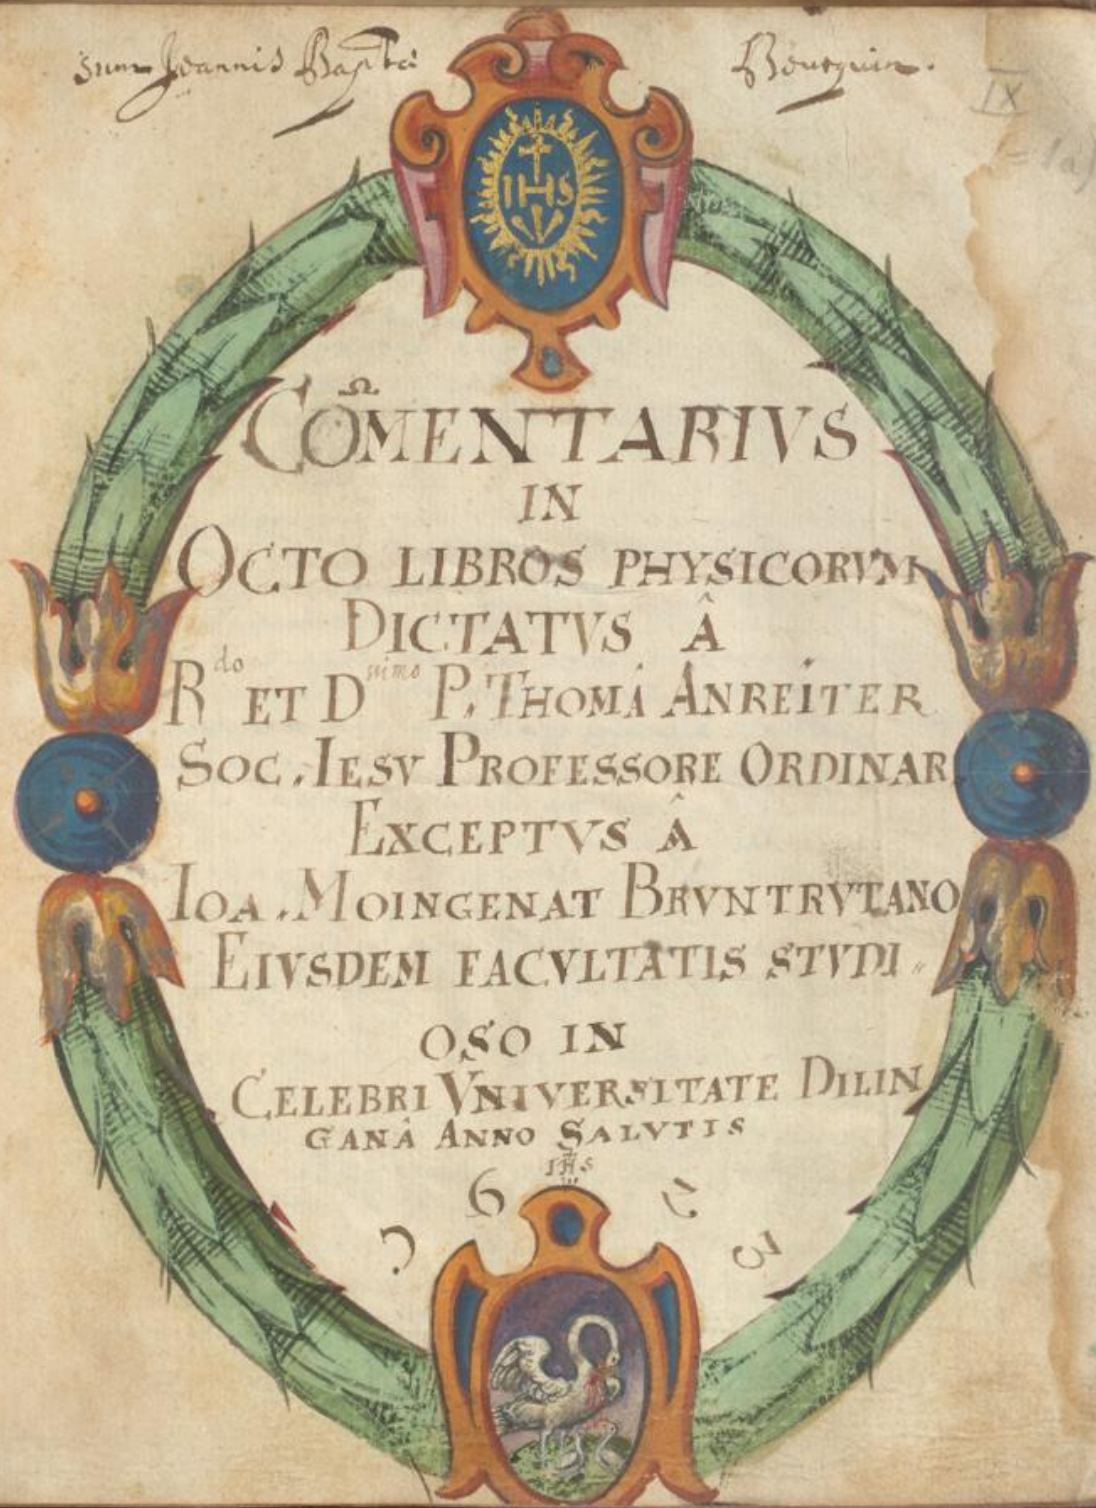 Sum Joannis Baptæ
IX
IHS
COM̃ENTARIVS
IN
OCTO LIBROS PHYSICORVM
DICTATVS Â
R^do ET D^nimo P. THOMÂ ANREITER
SOC. IESV PROFESSORE ORDINAR
EXCEPTVS Â
IOA. MOINGENAT BRVNTRVTANO
EIVSDEM FACVLTATIS STVDI〃
OSO IN
CELEBRI VNIVERSITATE DILIN
GANÂ ANNO SALVTIS
IHS